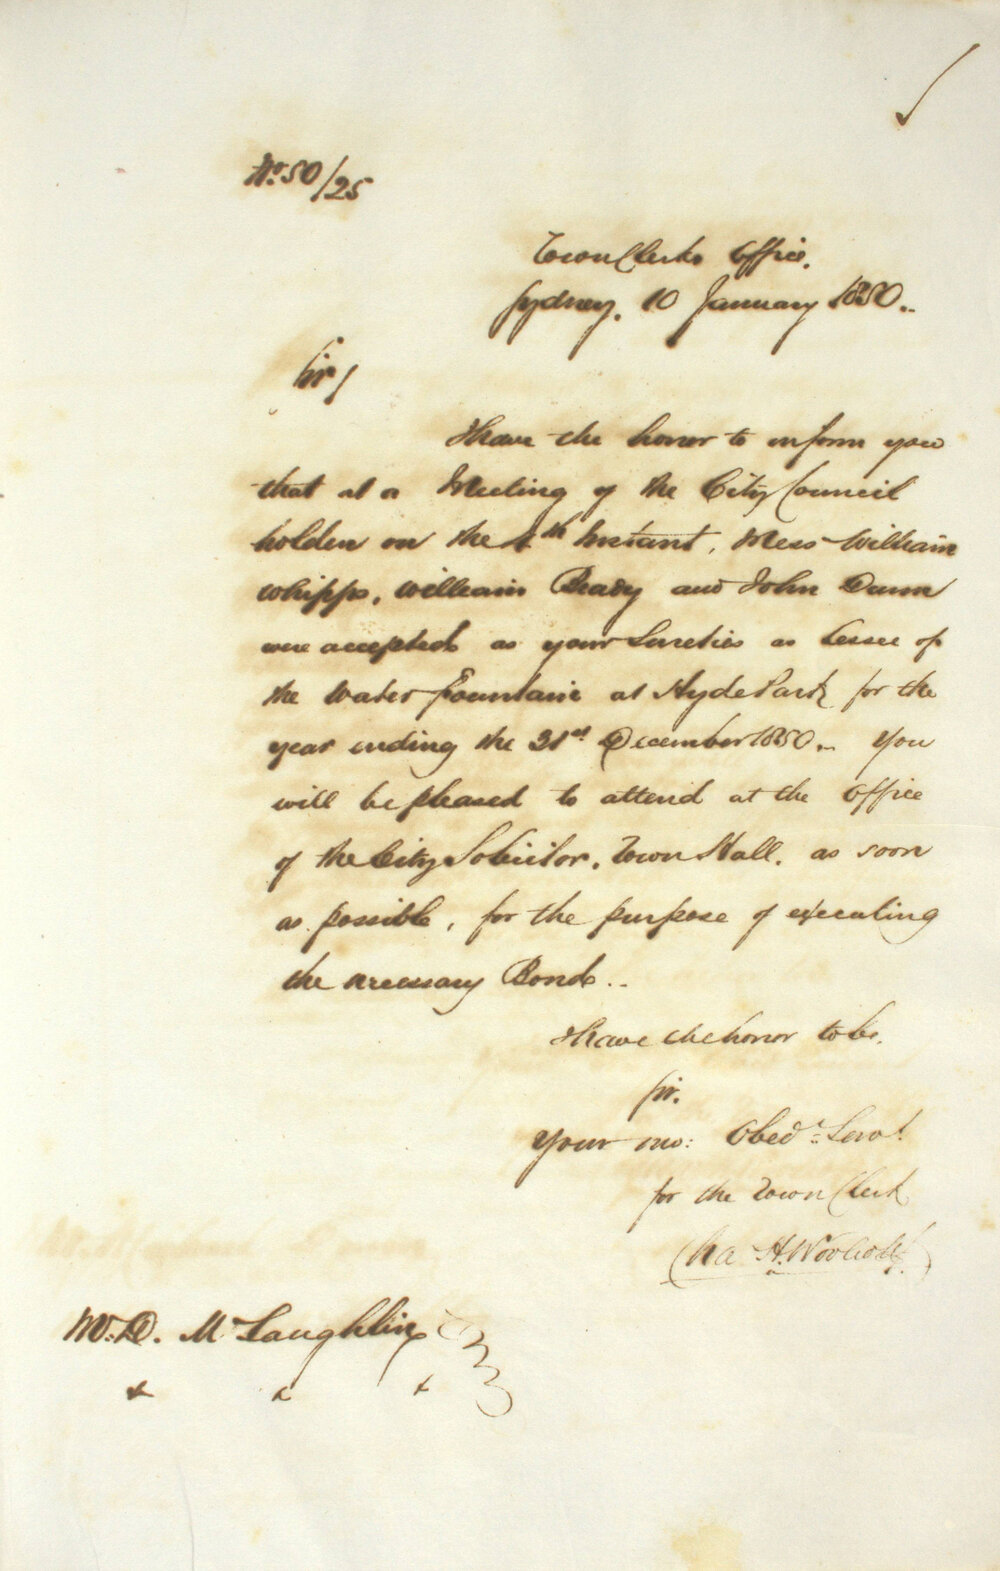 No. 50/25
Town Clerks Office.
Sydney. 10 January 1850..
Sir/
I have the honor to inform you
that at a Meeting of the City Council
holden on the th Instant, Mess William
Whipps, William Brady and John Dunn
were accepted as your Sureties as Lessee of
the Water Fountain at Hyde Park for the
year ending the 31st December 1850.. You
will be pleased to attend at the Office
of the City Solicitor, Town Hall, as soon
as possible, for the purpose of executing
the necessary Bond..
I have the honor to be.
Sir.
Your mo: Obed. Servt
for the Town Clerk
Cha H. Woolcott
Mr. D. McLaughlin